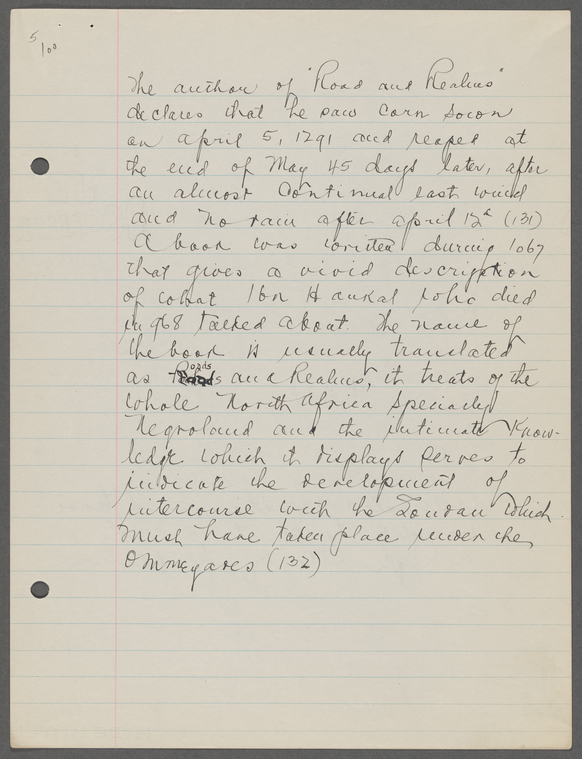 5
100
The author of "Road and Realms"
declares that he saw corn sown
on April 5, 1291 and reaped at
the end of May 45 days later, after
an almost continual east wind
and no rain after April 12th (131)
A book was written during 1067
that gives a vivid description
of what Ibn Haukal who died
in 968 talked about. The name of
the book is usually translated
as Roads and Realms, it treats of the
whole North Africa specially
Negroland and the intimate know-
ledge which it displays serves to
indicate the development of
intercourse with the Soudan which
must have taken place under the
Ommeyades (132)